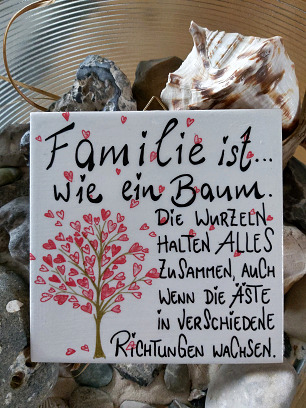 Familie ist...
wie ein Baum.
Die Wurzeln
halten alles
zusammen, auch
wenn die Äste
in verschiedene
Richtungen wachsen.